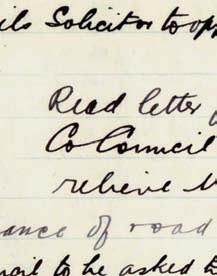 ils Solicitor to opp
Read letter
Co Council
relieve
ance of road
ncil to be asked to